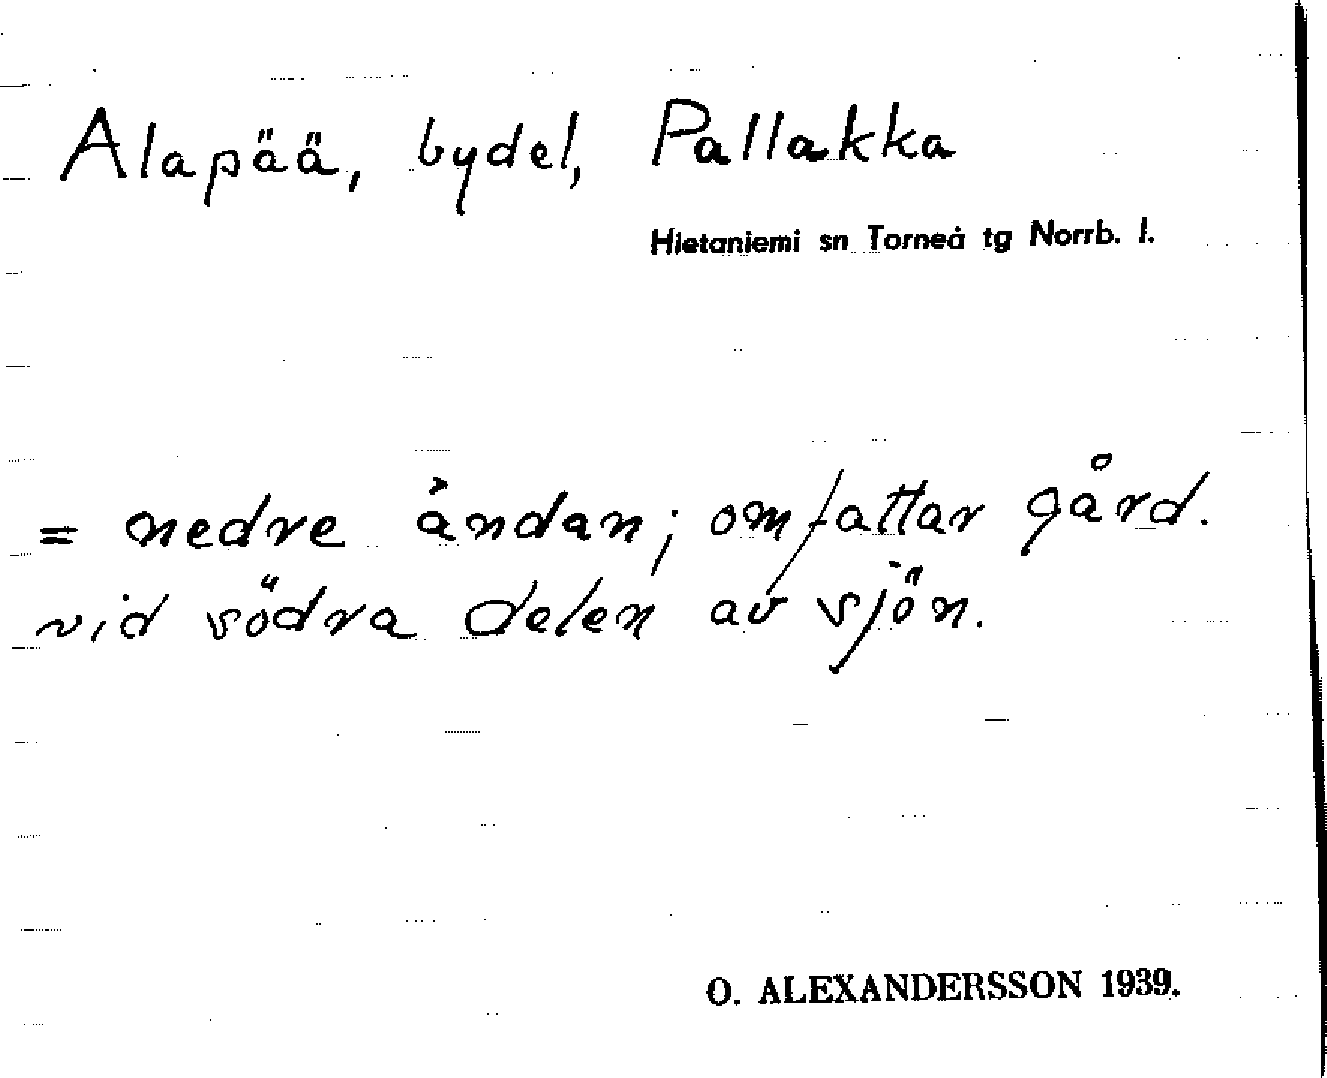 Alapää, bydel, Pallakka
Hietaniemi sn Torneå tg Norrb. l.
= nedre ändan; omfattar gård.
vid södra delen av sjön.
O. ALEXANDERSSON 1939.